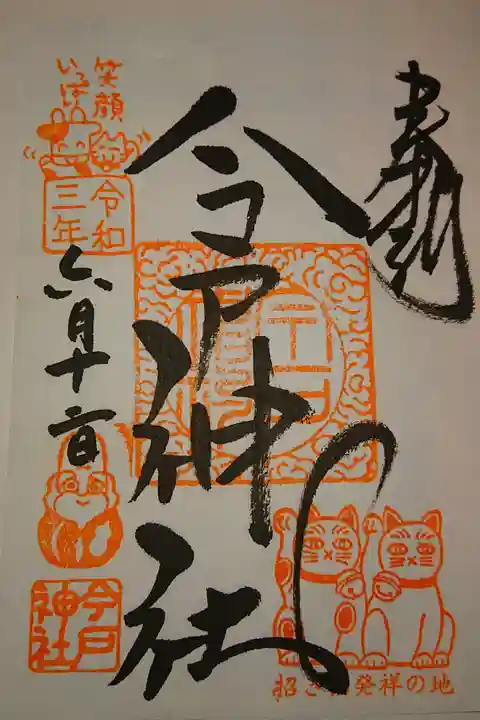 奉拝
今戸神社
笑顔
いっぱい
令和
三年
六月十二日
今戸
神社
招き猫発祥の地